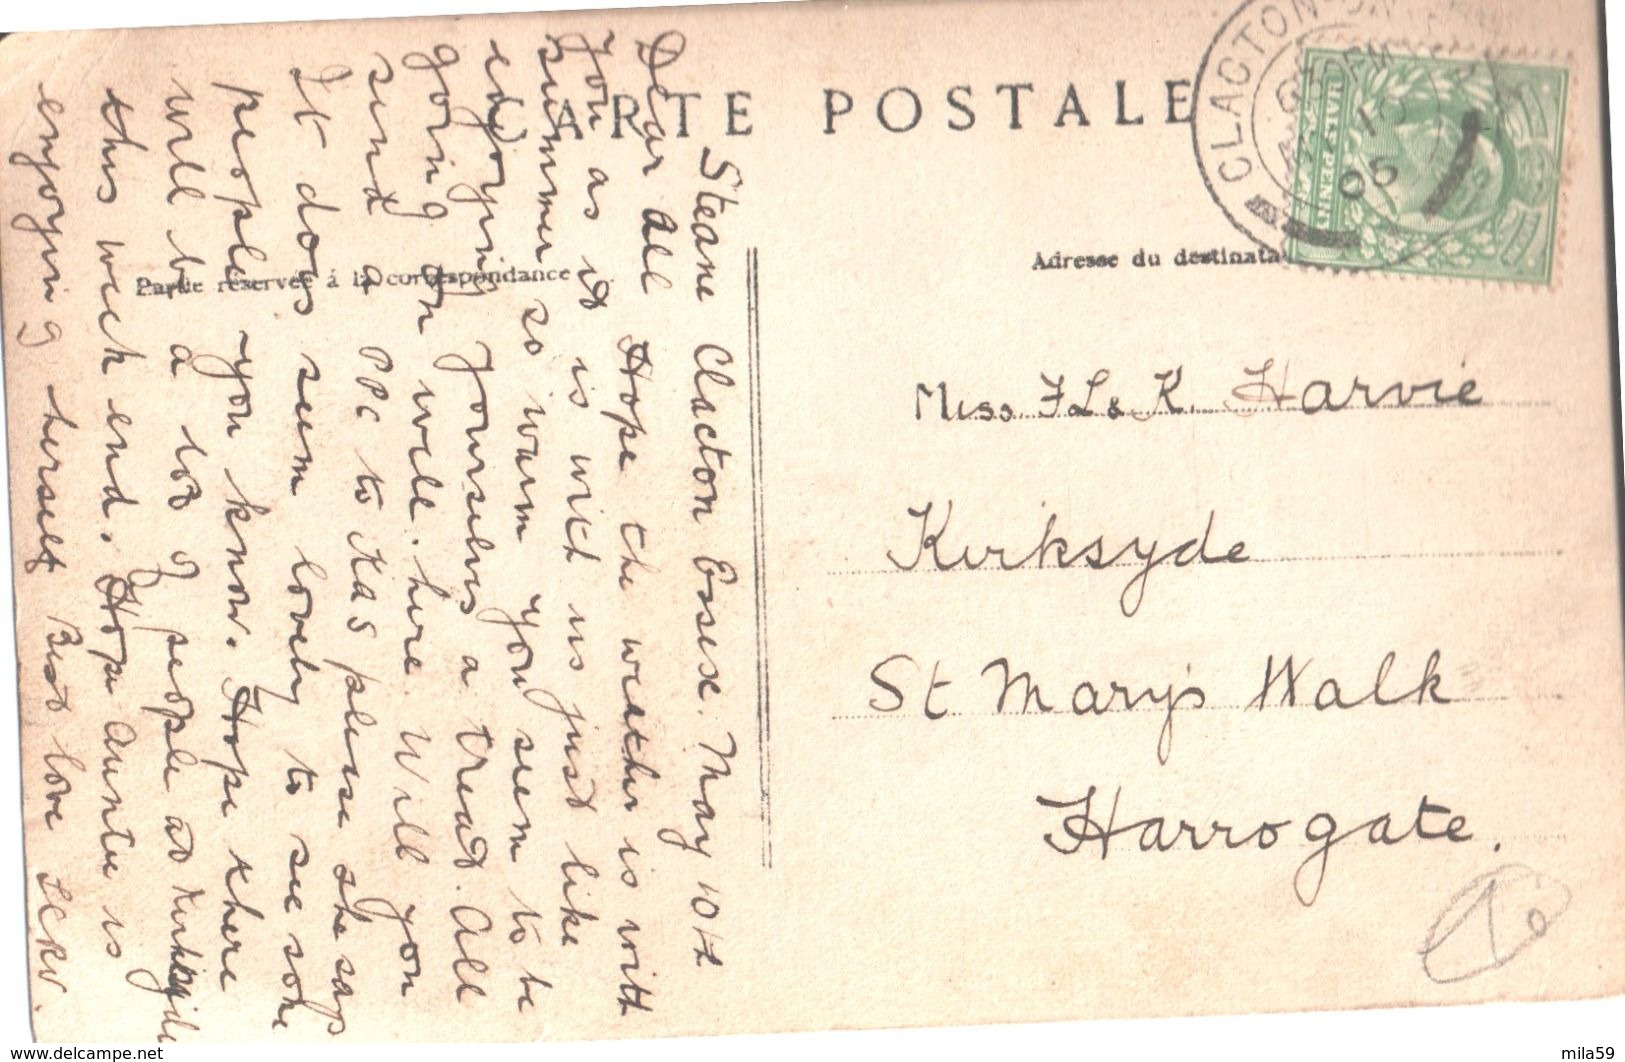 CARTE POSTALE
CLACTON-ON-
MY 10
05
HALFPENNY
Partie réservée á la correspondance
Adresse du destinata
Steane Clacton Essex. May 10th
Dear All Hope the weather is with
you as it is with us just like
summer so warm you seem to be
enjoying yourselves a treat. All
going on well here. Will you
send a PPC to KAS please she says
It does seem lovely to see some
people you know. Hope there
will be a lot of people at Kirksyde
this week end. Hope Auntie is
enjoying herself Best love
Miss FL & K. Harvie
Kirksyde
St Mary's Walk
Harrogate.
www.delcampe.net
mila59